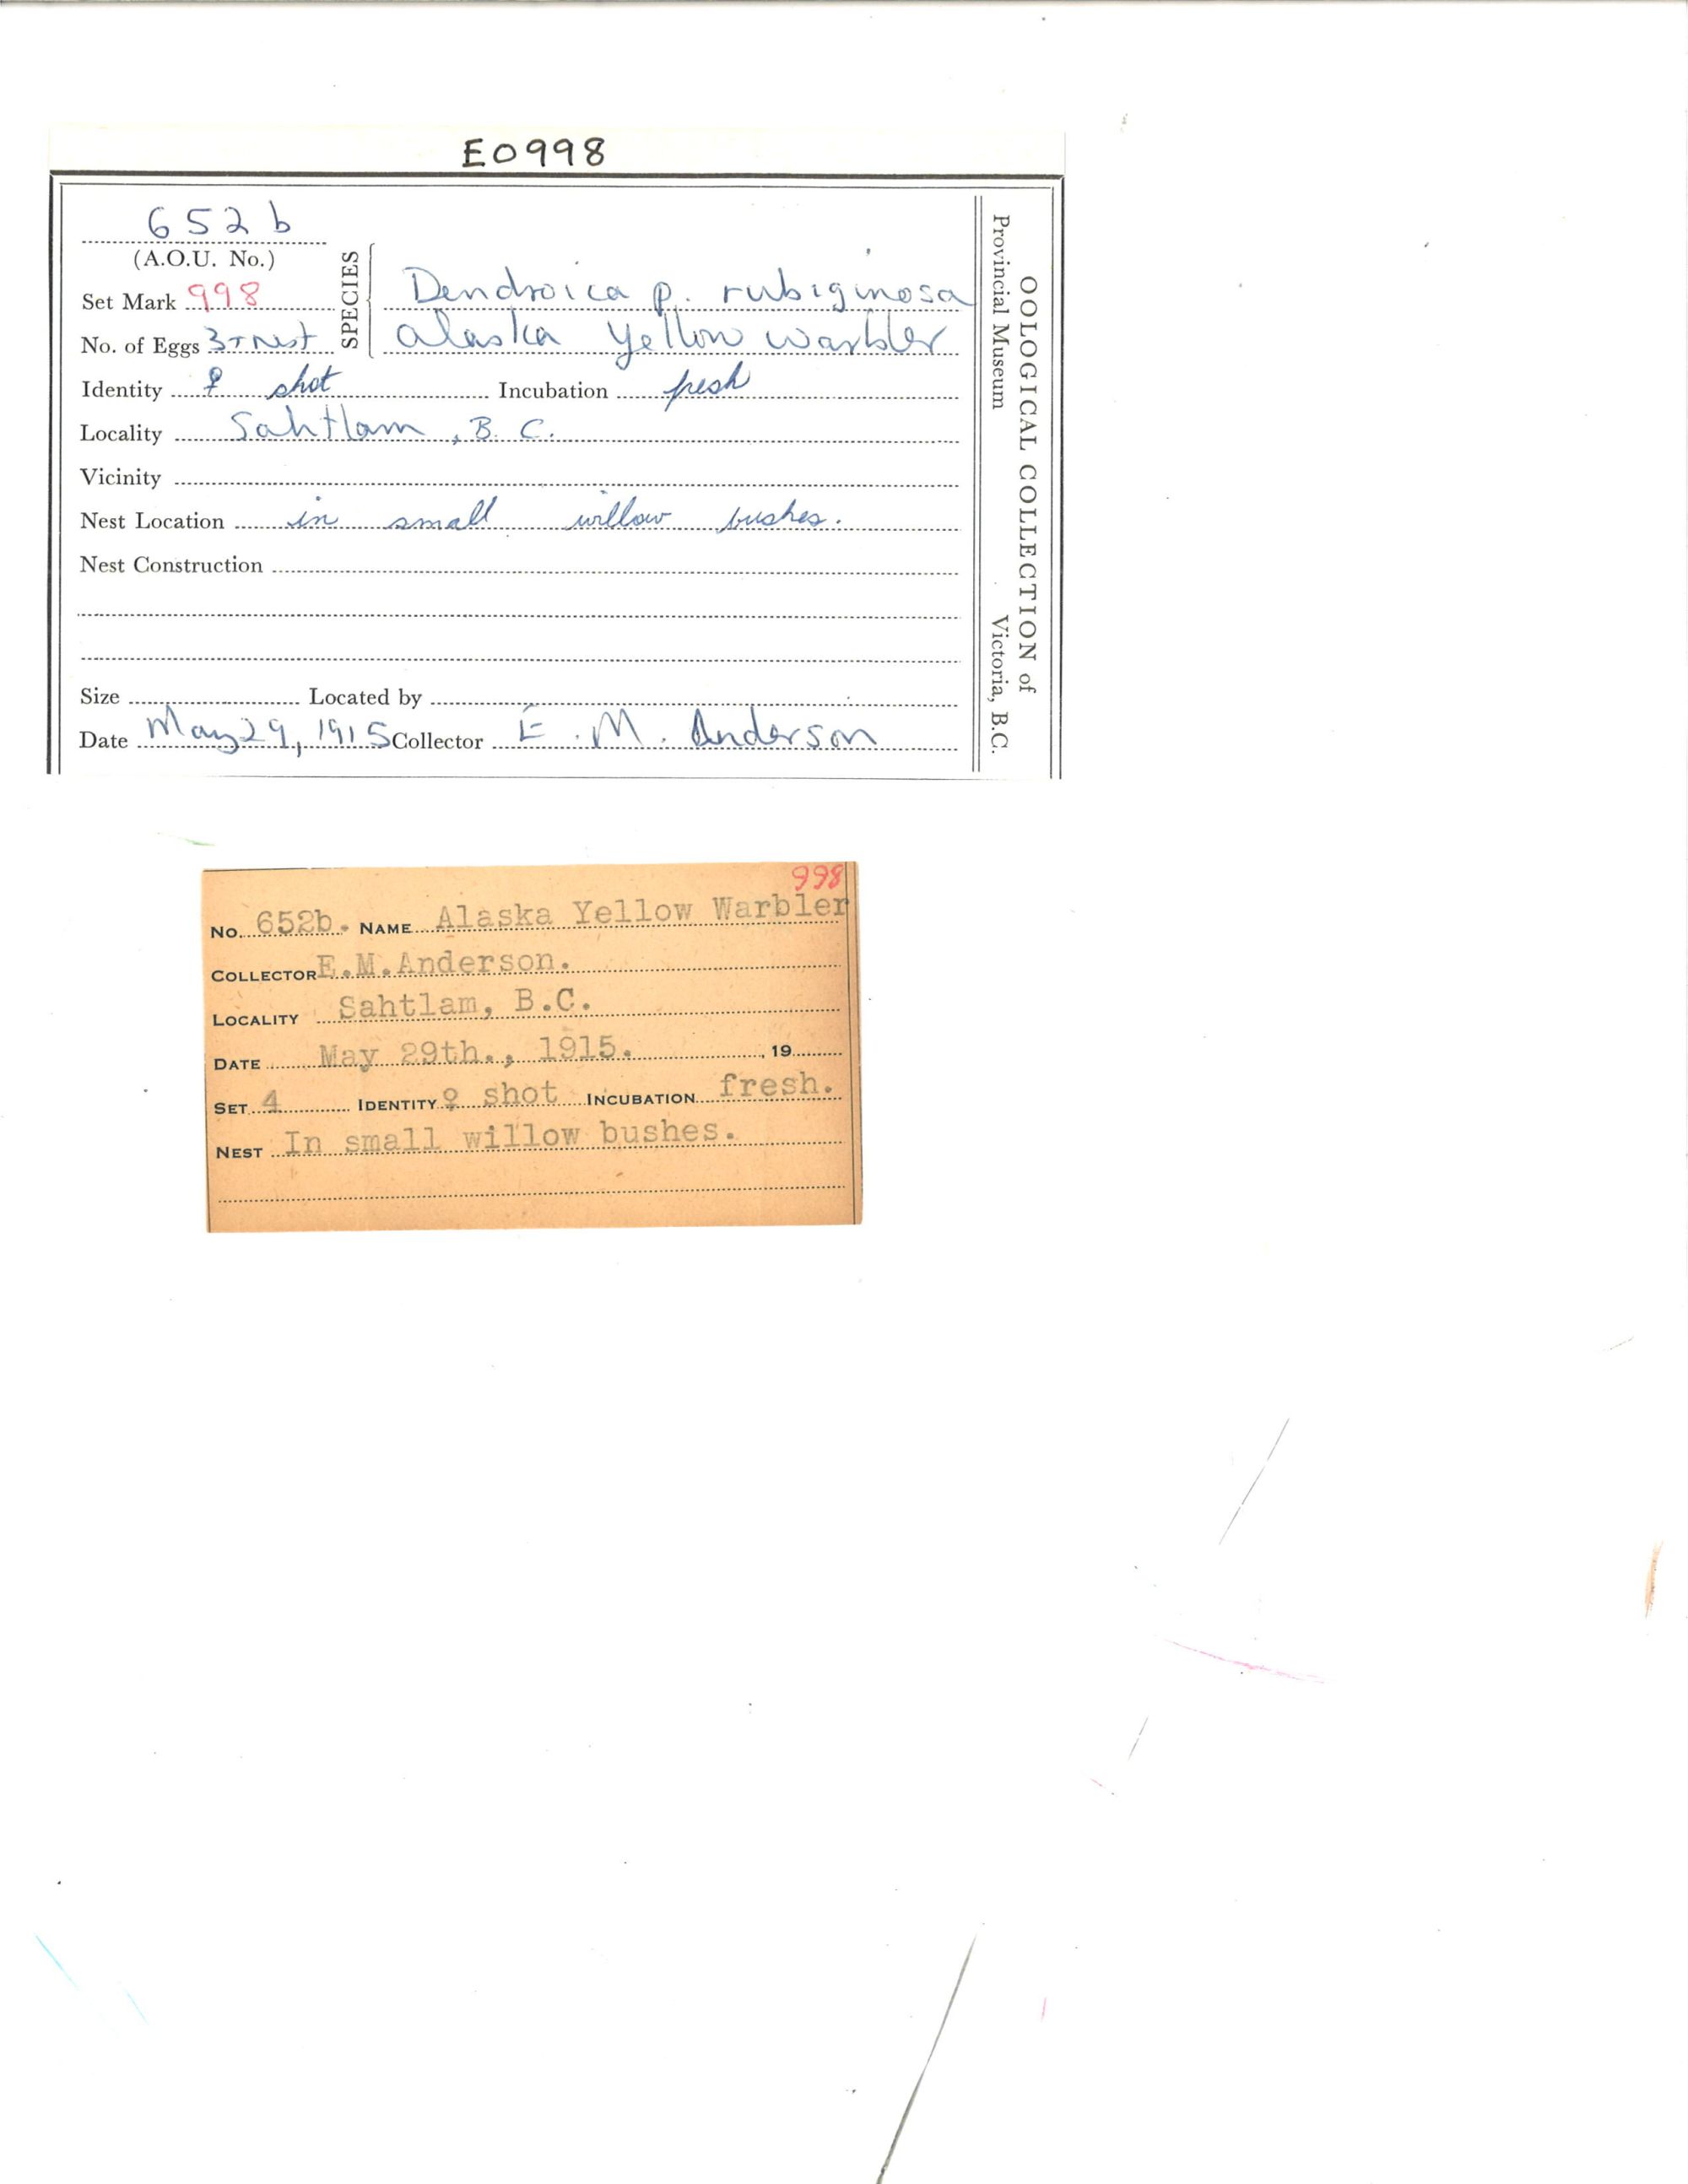 E0998
652b
(A.O.U. No.)
Set Mark 998
No. of Eggs 3 + Nest
SPECIES
Dendroica p. rubiginosa
Alaska Yellow Warbler
Identity ♀ shot Incubation fresh
Locality Sahtlam, B. C.
Vicinity
Nest Location in small willow bushes.
Nest Construction
Size Located by
Date May 29, 1915 Collector E. M. Anderson
OOLOGICAL COLLECTION of
Provincial Museum Victoria, B.C.
998
No. 652b. NAME Alaska Yellow Warbler
COLLECTOR E.M.Anderson.
LOCALITY Sahtlam, B.C.
DATE May 29th., 1915. , 19
SET 4 IDENTITY ♀ shot INCUBATION fresh.
NEST In small willow bushes.